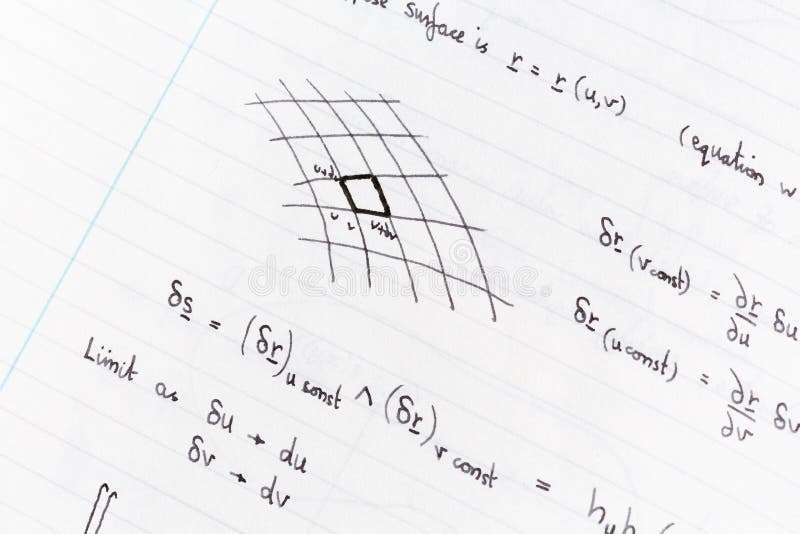 surface is r = r (u,v)
(equation w
u+δu
u
v
v+δv
δr (v const) = ∂r/∂u δu
δr (u const) = ∂r/∂v δv
δs = (δr) u const ∧ (δr) v const = hu h
Limit as δu → du
δv → dv
∬
dreamstime